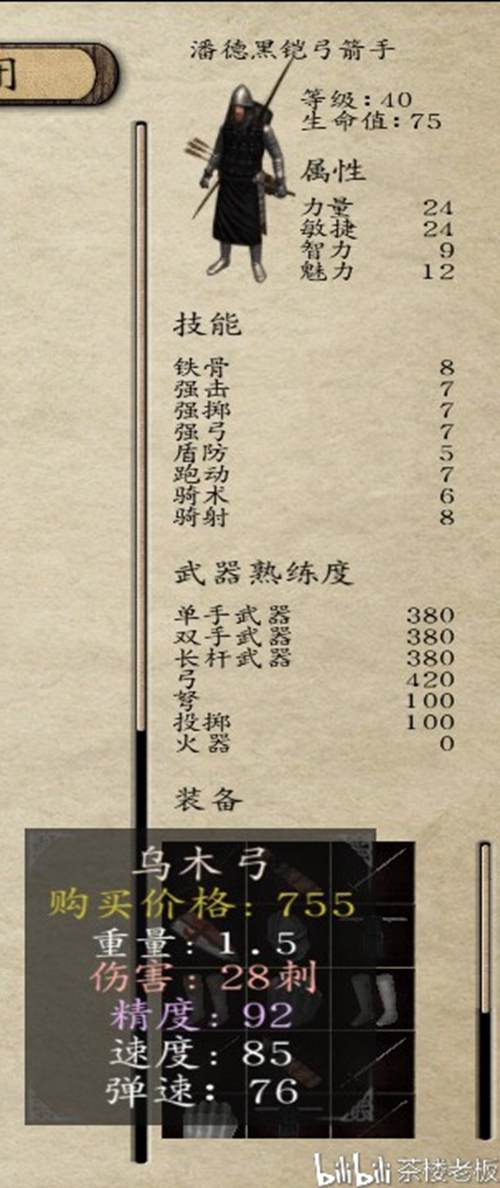 闭
潘德黑铠弓箭手
等级:40
生命值:75
属性
力量 24
敏捷 24
智力 9
魅力 12
技能
铁骨 8
强击 7
强掷 7
强弓 7
盾防 5
跑动 7
骑术 6
骑射 8
武器熟练度
单手武器 380
双手武器 380
长杆武器 380
弓 420
弩 100
投掷 100
火器 0
装备
乌木弓
购买价格:755
重量:1.5
伤害:28刺
精度:92
速度:85
弹速:76
bilibili 茶楼老板